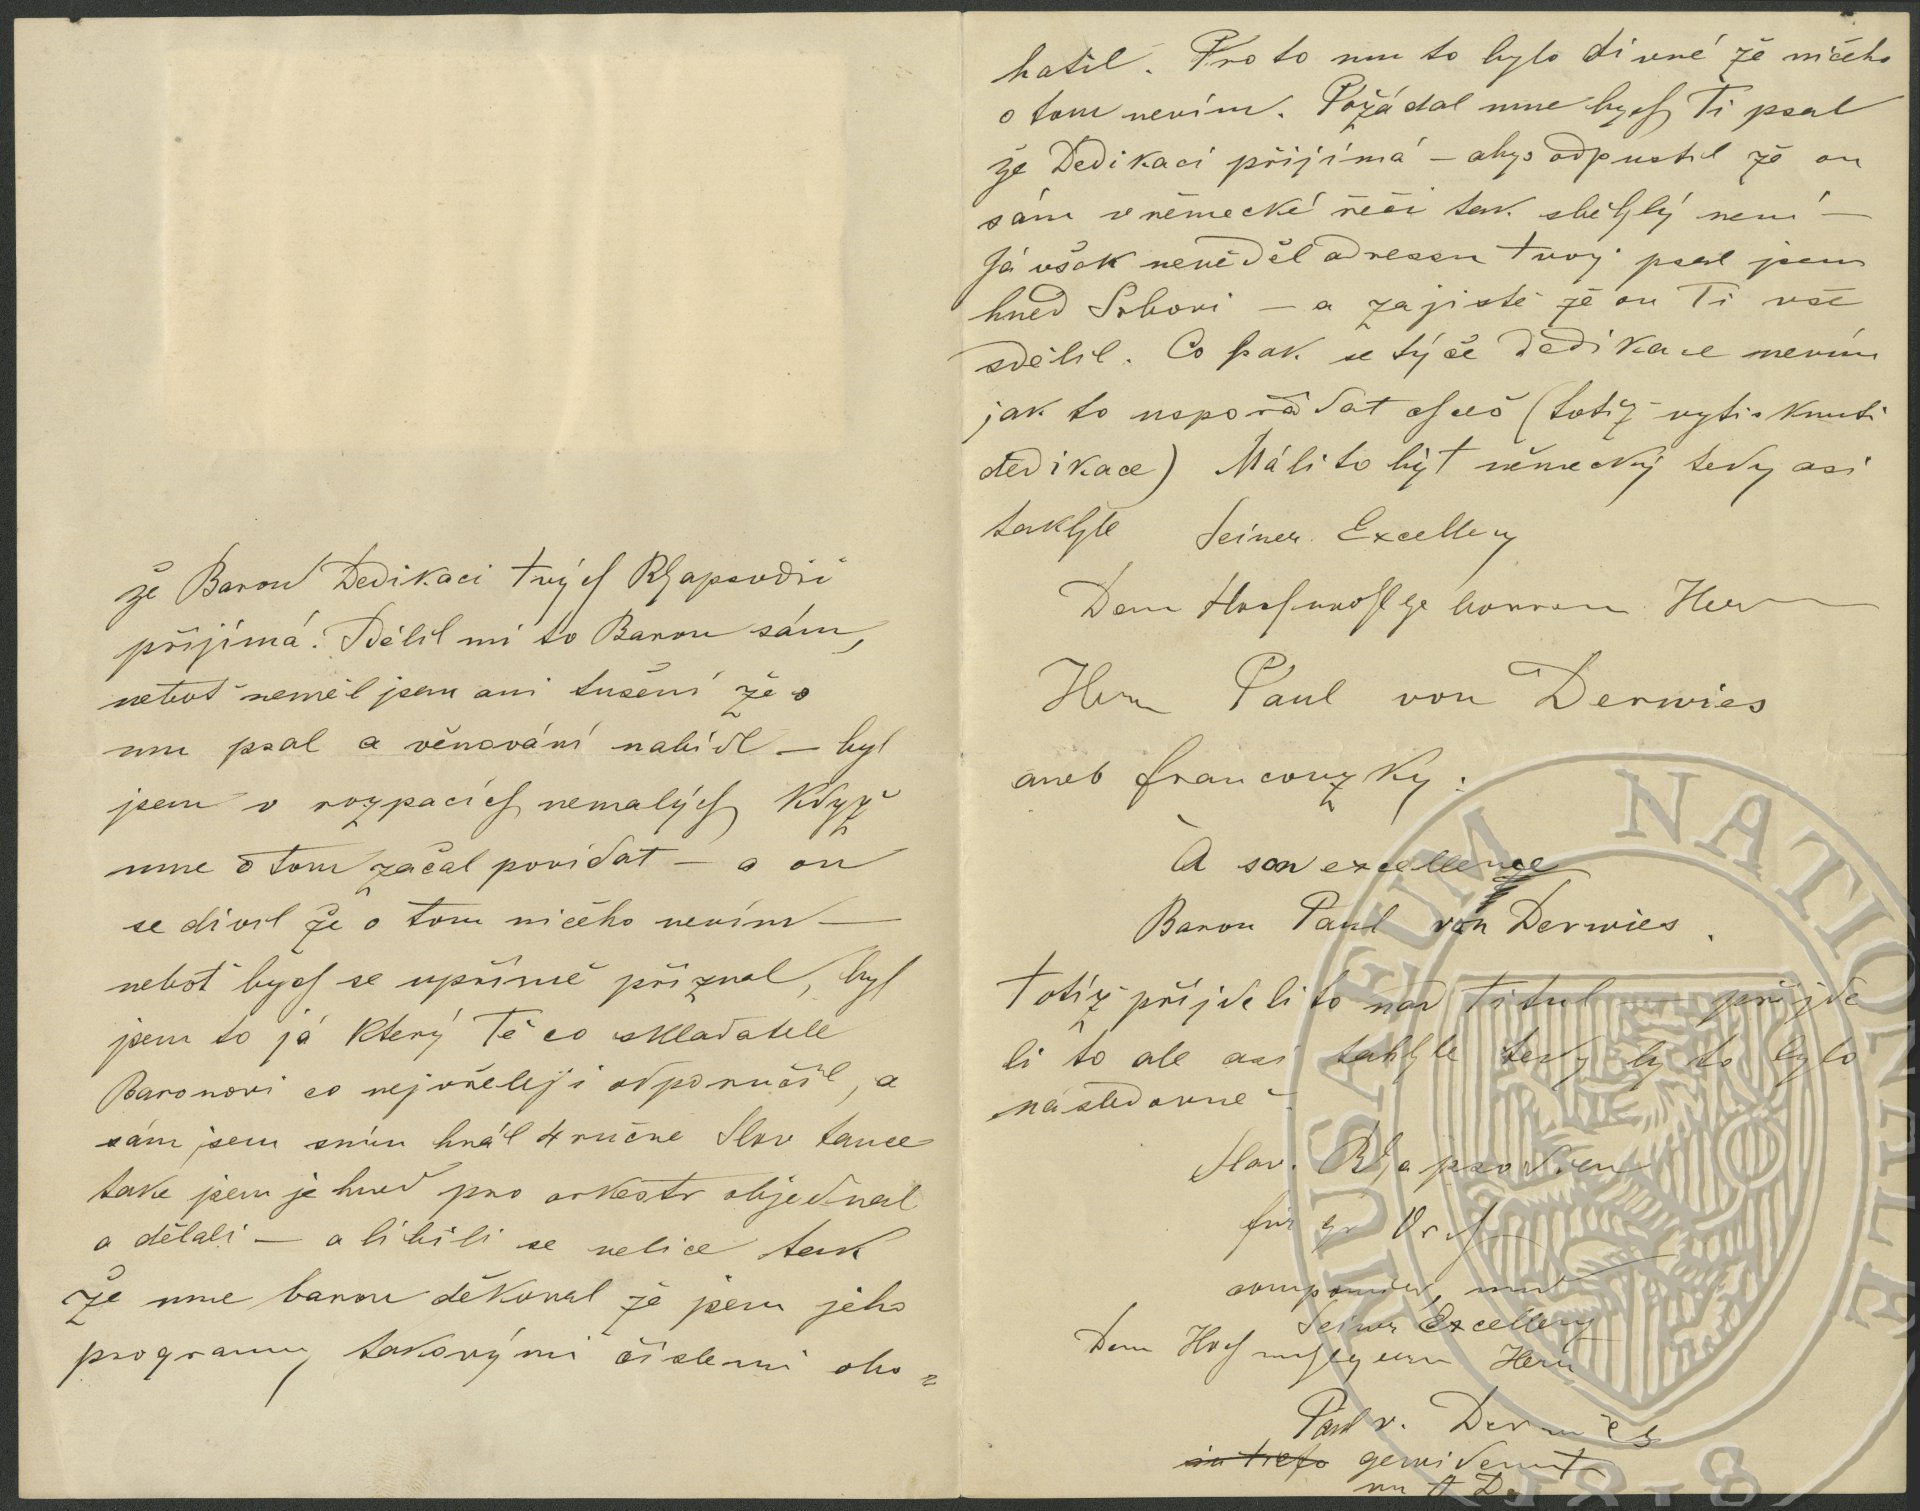 že Baron Dedikaci tvých Rhapsodií
přijímá. Sdělil mi to Baron sám,
neboť neměl jsem ani tušení že s
mu psal a věnování nabídl – byl
jsem v rozpacích nemalých když
mne o tom začal povídat – a on
se divil že o tom ničeho nevím –
nebot bych se upřímě přiznal, byl
jsem to já který Tě co skladatele
Baronovi co nejvřeleji odporučil, a
sám jsem sním hrál 4 ručne Slov tance
take jsem je hned pro orkestr objednal
a dělali – a libili se velice tak
že mne baron děkoval že jsem jeho
programy takovými čislemi obo=
hatil. Proto mu to bylo divné že ničeho
o tom nevím. Požádal mne bych Ti psal
že Dedikaci přijímá – abys odpustil že on
sám v německé řeči tak sběhlý není –
Já však nevěděl adressu tvoj psal jsem
hned Srbovi – a zajisté že on Ti vše
sdělil. Co pak se týče dedikace nevím
jak to uspořádat chceš (totiž vytisknuti
dedikace) Máli to být německý tedy asi
takhle Seiner Excellenz
Dem Hochwohlgeborenen Herrn
Herrn Paul von Derwies
aneb francouzky:
À son excellence
Baron Paul von Derwies.
totiž přijdeli to nad titul — přijde
li to ale asi takhle tedy by to bylo
následovně
Slav. Rhapsodien
für gr Orch
componirt, und
Seiner Excellenz
Dem Herrn
Paul v. Derwies
gewidemt
MUSAEUM NATIONALE
1818